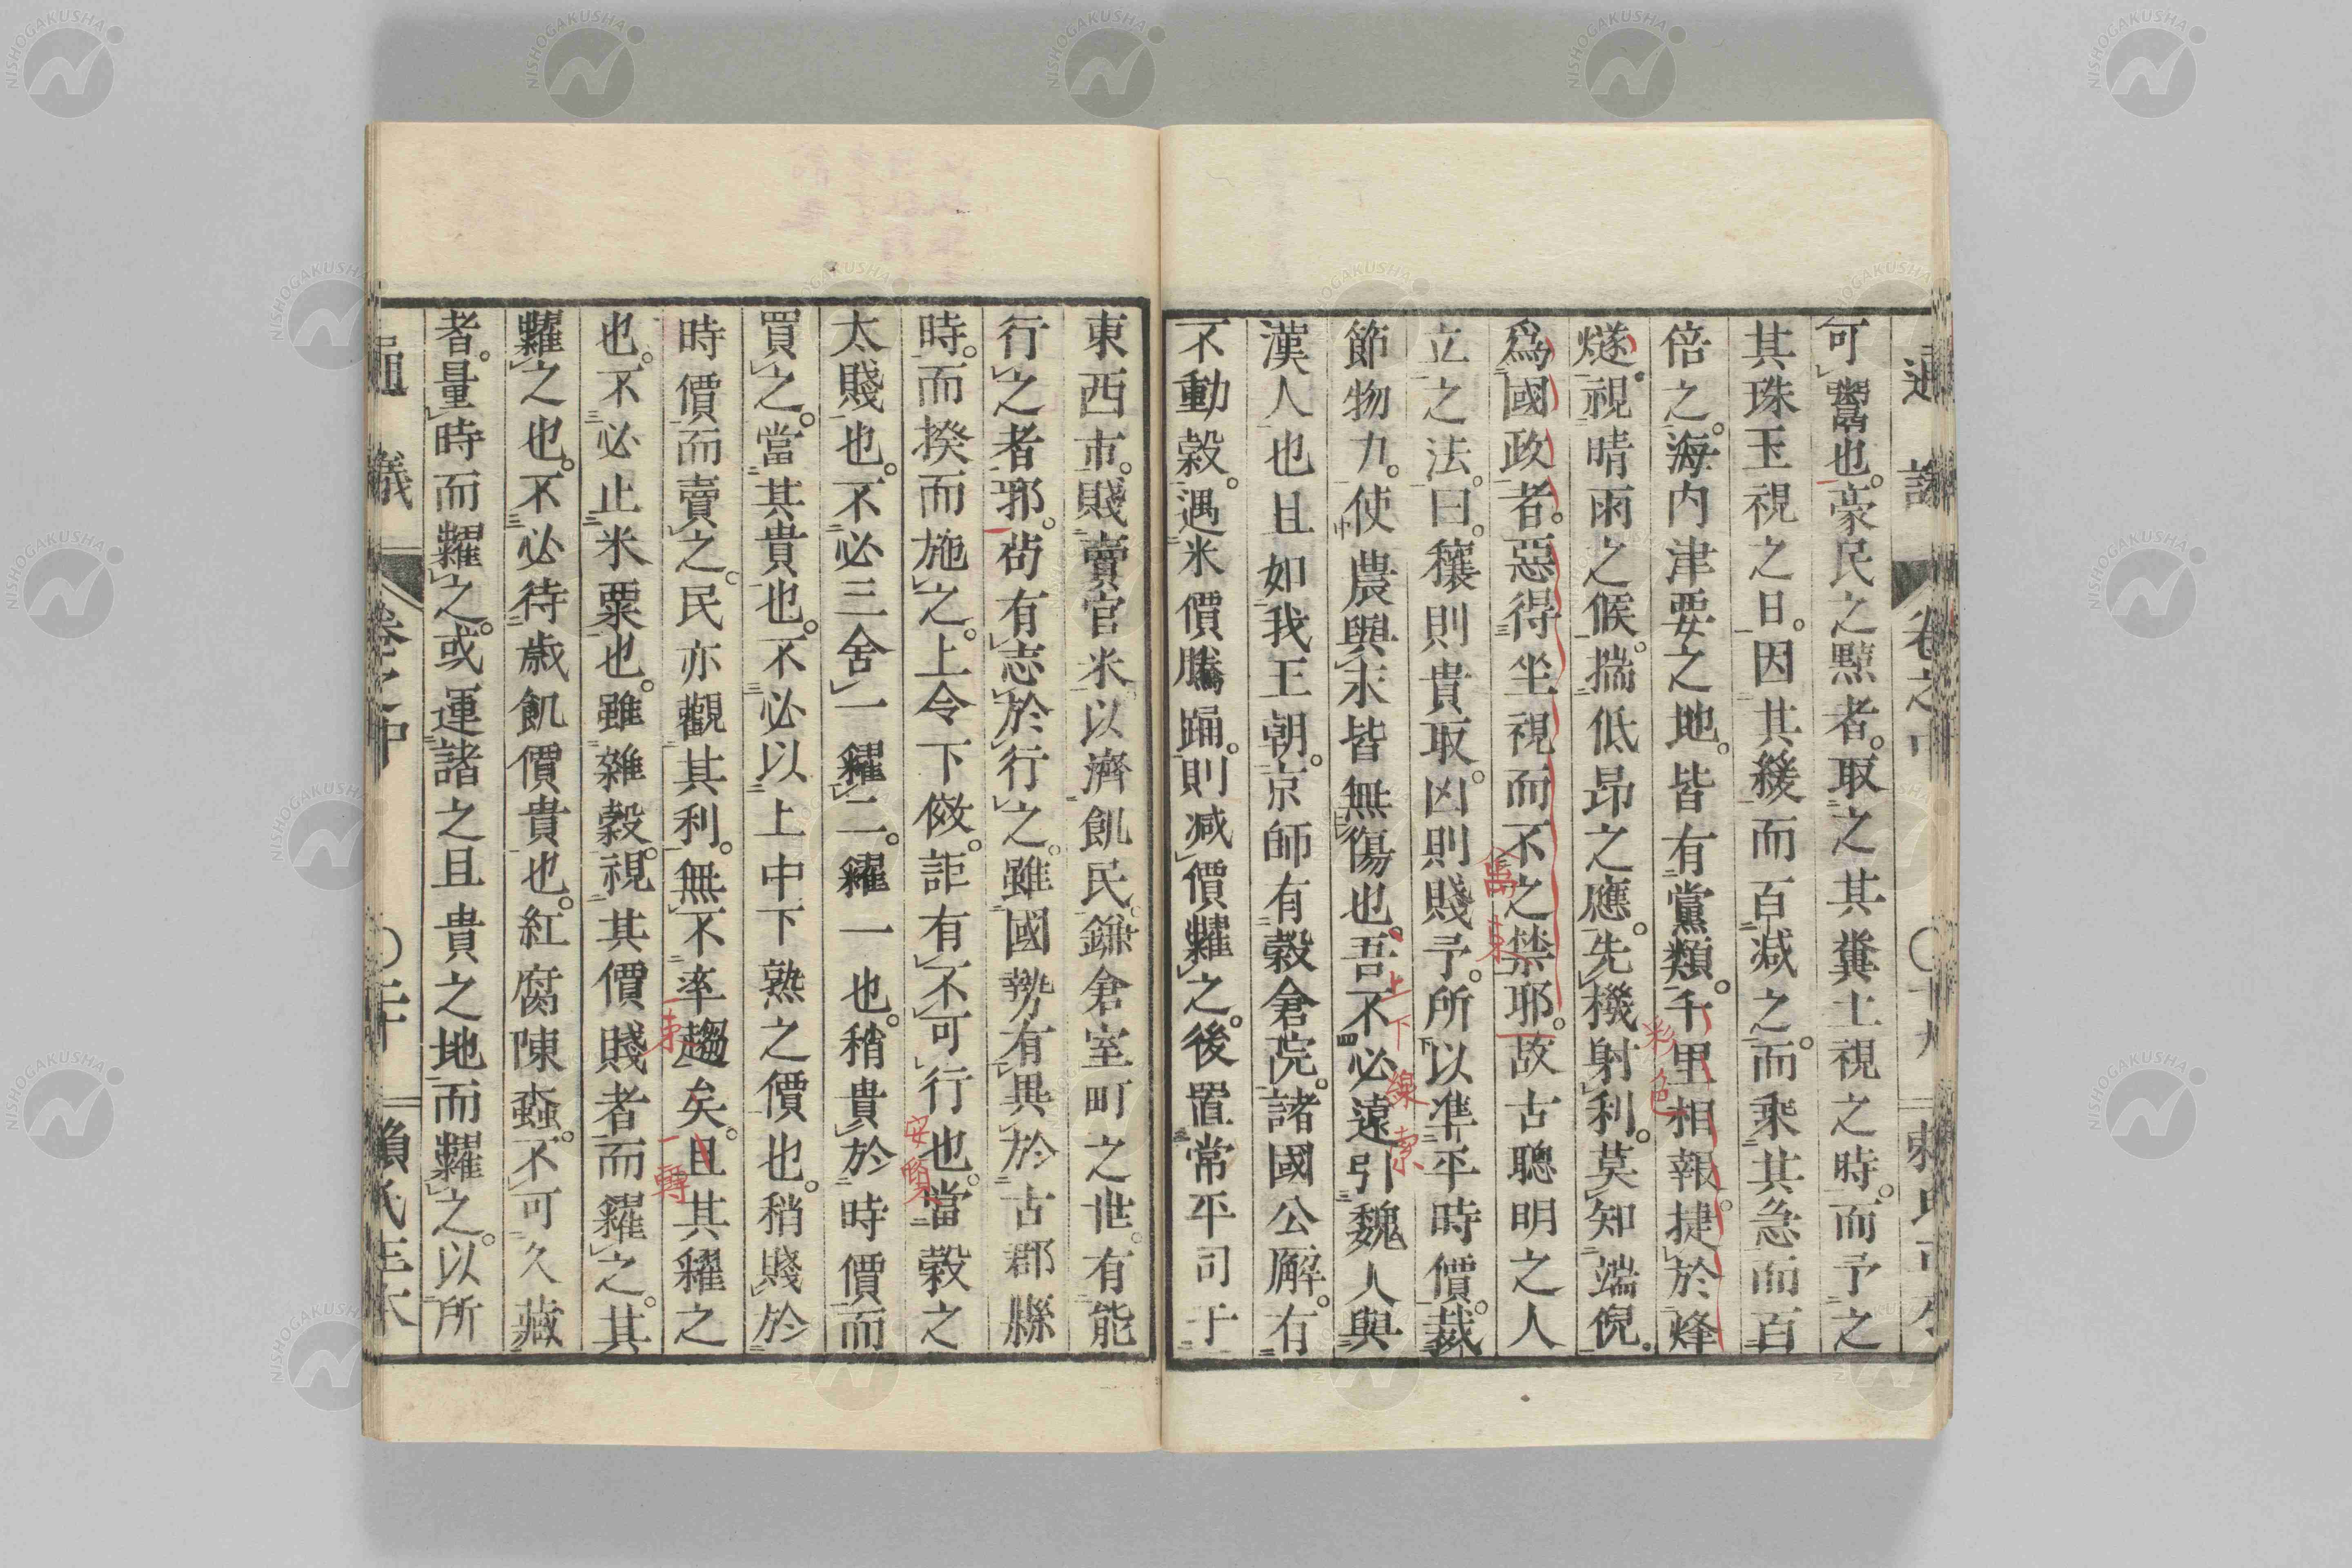 可鬻也。豪民之黠者。取之其糞土視之時。而予之
其珠玉視之日。因其緩而百減之。而乘其急而百
倍之。海内津要之地。皆有黨類。千里相報。捷於烽
燧。視晴雨之候。揣低昂之應。先機射利。莫知端倪。
爲國政者。惡得坐視而不之禁耶。故古聰明之人
立之法。曰。穰則貴取。凶則賤予。所以準平時價。裁
節物力。使農與末皆無傷也。吾不必遠引魏人與
漢人也且如我王朝。京師有穀倉院。諸國公廨。有
不動穀。遇米價騰踊。則減價糶之。後置常平司于
東西市。賤賣官米。以濟飢民。鎌倉室町之世。有能
行之者邪。茍有志於行之。雖國勢有異於古郡縣
時。而揆而施之。上令下傚。詎有不可行也。當穀之
太賤也。不必三舍一糴二。糴一也。稍貴於時價而
買之。當其貴也。不必以上中下熟之價也。稍賤於
時價而賣之。民亦觀其利。無不率趨矣。且其糴之
也。不必止米粟也。雖雜穀。視其價賤者而糴之。其
糶之也。不必待歳飢價貴也。紅腐陳蝕。不可久藏
者。量時而糶之。或運諸之且貴之地而糶之。以所
通議
卷之中
〇二十
頼氏正本
通議
卷之中
〇十九
萬朿
上下
線索
彩色
安頓
朿
一轉
NISHOGAKUSHA